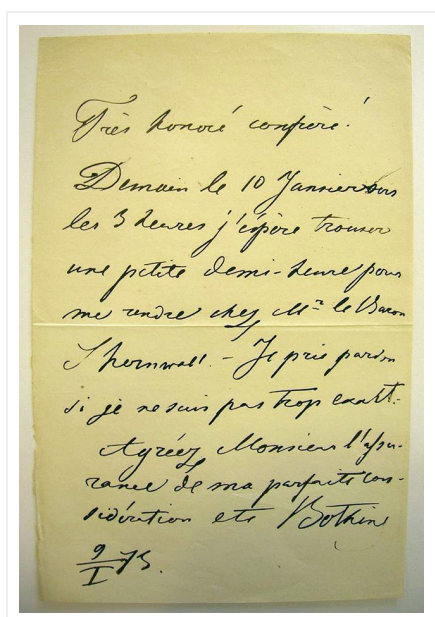 Très honoré confrère!
Demain le 10 Janvier vers
les 3 heures j'éspère trouver
une petite demi-heure pour
me rendre chez Mr le Baron
– Je prie pardon
si je ne suis pas trop exact.
Agréez Monsieur l'assu-
rance de ma parfaite con-
sidération etc Botkin
9/I 73.